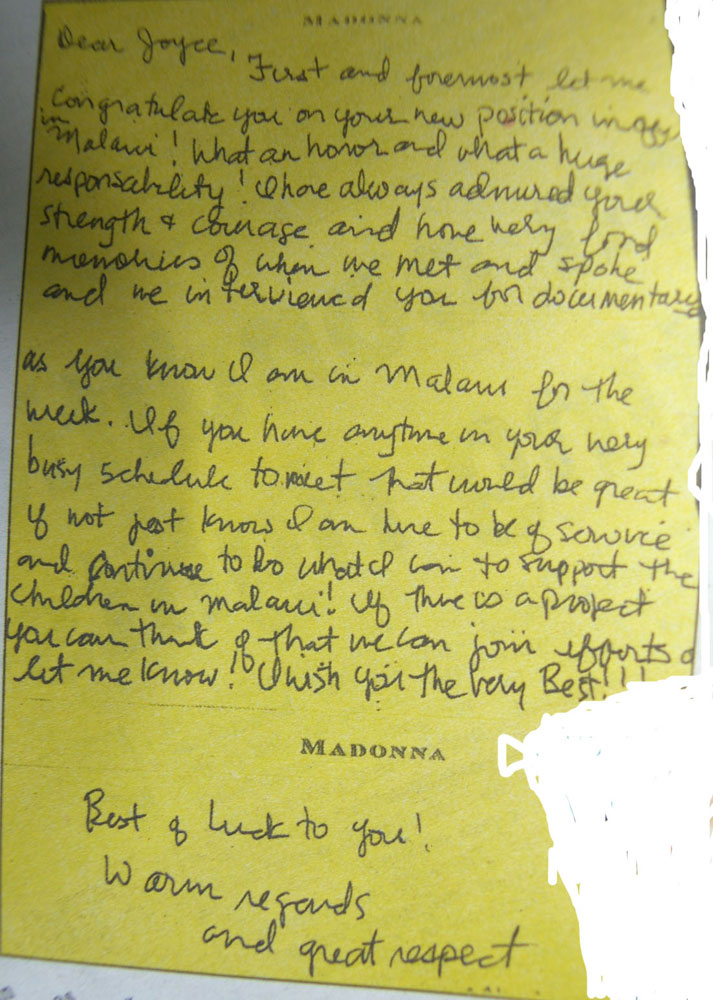 MADONNA
Dear Joyce,
First and foremost let me
congratulate you on your new position
in Malawi! What an honor and what a huge
responsability! I have always admired your
strength & courage and have very fond
memories of when we met and spoke
and we interviewed you for documentary
as you know I am in Malawi for the
week. If you have anytime in your very
busy schedule to meet that would be great
if not just know I am here to be of service
and continue to do what I can to support the
children in Malawi! If there is a project
you can think of that we can join efforts
let me know! I wish you the very Best!!!
MADONNA
Best of luck to you!
Warm regards
and great respect